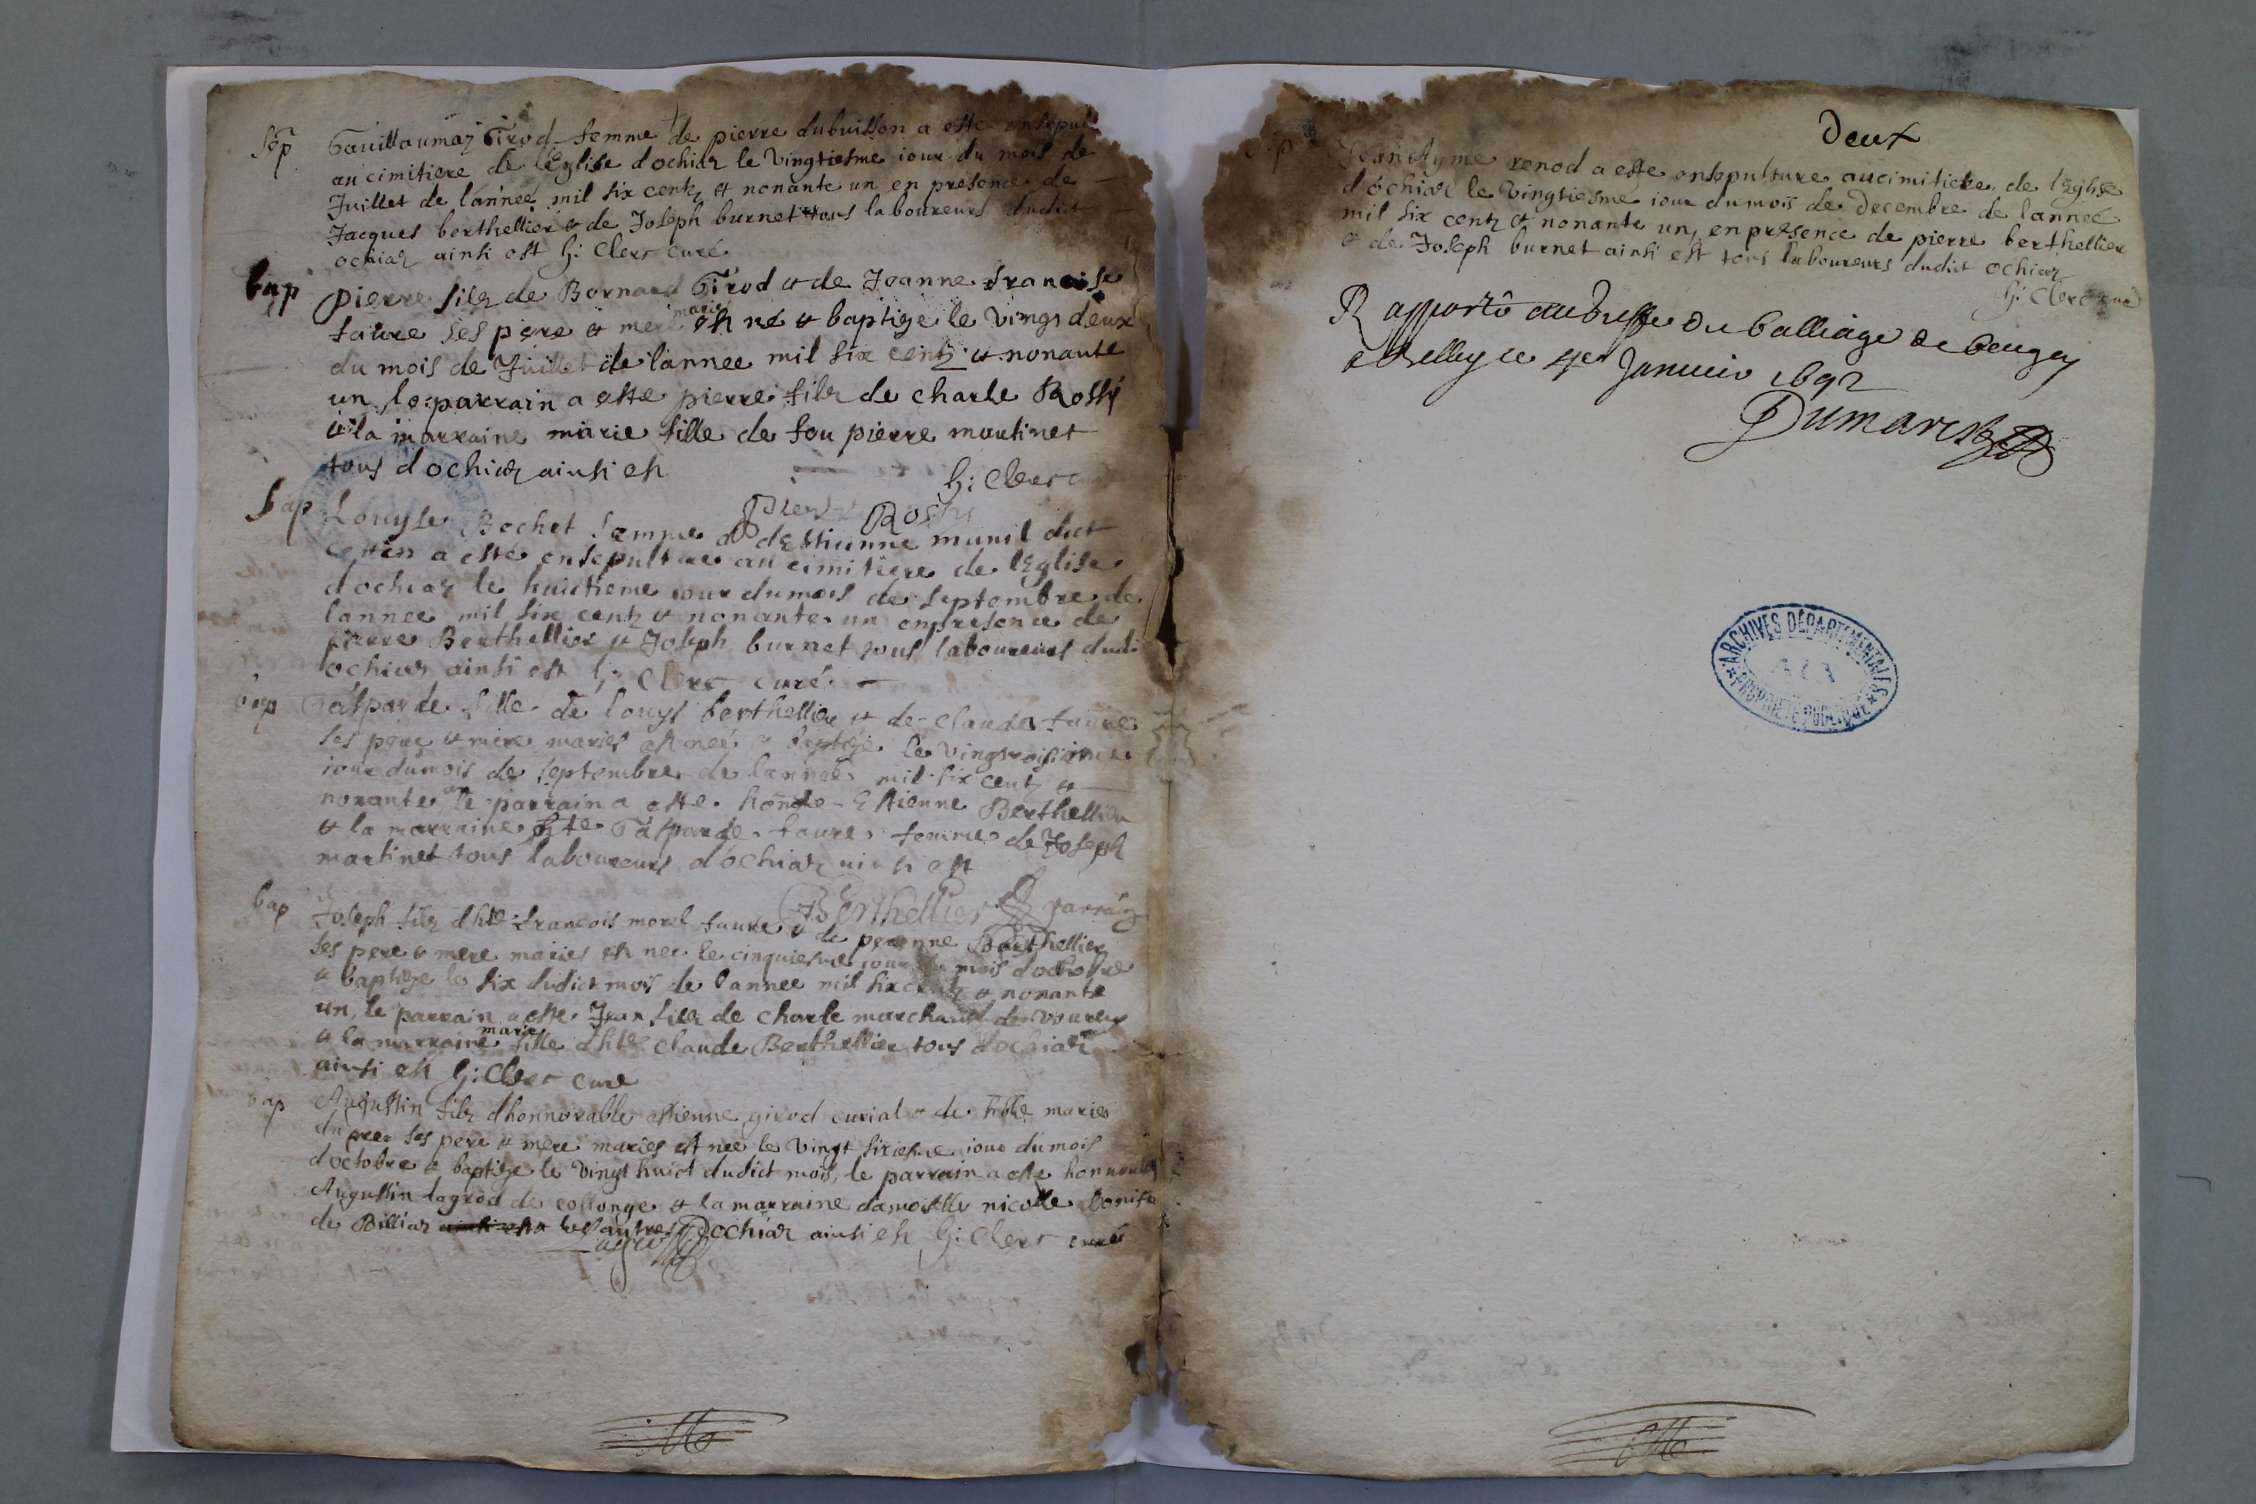 sep
Gauillaumaz Girod femme de pierre dubuisson a esté ensepul
au cimitiere de l'Eglise d'ochiaz le vingtiesme iour du mois de
Juillet de l'anneé mil six centz et nonante un en presence de
Jacques berthellier & de Joseph burnet tous laboureurs dudict
ochiaz ainsi est h: Clerc curé
bap
pierre filz de Bernard Girod et de Jeanne francoise
faure ses pere & mere mariés est né & baptize le vingt deux
du mois de Juillet de l'annee mil six centz et nonante
un, le parrain a esté pierre filz de charle Rossy
& la marraine marie fille de feu pierre martinet
tous d'ochiaz ainsi est
h: Clerc
pierre Rossy
bap
Louyse Bochet femme d'Estienne munil dict
a esté ensepulture au cimitiere de l'Eglise
d'ochiaz le huictieme iour du mois de septembre de
l'annee mil six centz & nonante un en presence de
pierre Berthellier & Joseph burnet tous laboureurs dudi
ochiaz ainsi est h: Clerc curé
bap
Gasparde fille de louys berthellier et de Clauda faure
ses pere & mere mariés est neé & baptizé le vingtroisieme
iour du mois de septembre de l'anneé mil six centz &
nonante un le parrain a esté Estienne Berthellier
& la marraine hte Gasparde faure femme de Joseph
martinet tous laboureurs d'ochiaz ainsi est
Berthellier parrain
bap
Joseph filz d'hte francois morel faure & de Berthellier
ses pere & mere mariés est neé le cinquiesme iour du mois d'octobre
& baptize le six dudict mois de l'annee mil six centz & nonante
un, le parrain a esté Jean filz de charle marchand de vouvray
& la marraine marie fille d'hte Claude Berthellier tous d'ochiaz
ainsi est h: Clerc curé
bap
Augustin filz d'honnorable estienne girod curial & de marie
du prez ses pere & mere mariés est neé le vingt sixiesme iour du mois
d'octobre & baptize le vingt huict dudict mois, le parrain a esté honnorable
Augustin lagrod de collonge & la marraine damoiselle nicolle
de Billiaz ainsi est les autres d'ochiaz ainsi est h: Clerc curé
Deux
sep
Jean Ayme renod a esté ensepulture au cimitiere de l'Eglise
d'ochiaz le vingtiesme iour du mois de Decembre de l'anneé
mil six centz & nonante un, en presence de pierre berthellier
& de Joseph burnet ainsi est tous laboureurs dudict ochiaz
h: Clerc curé
Rapporté au greffe du balliage de beugey
a Belley ce 4er Janvier 1692
Dumarest
ARCHIVES DÉPARTEMENTALES
PROPRIÉTÉ PUBLIQUE